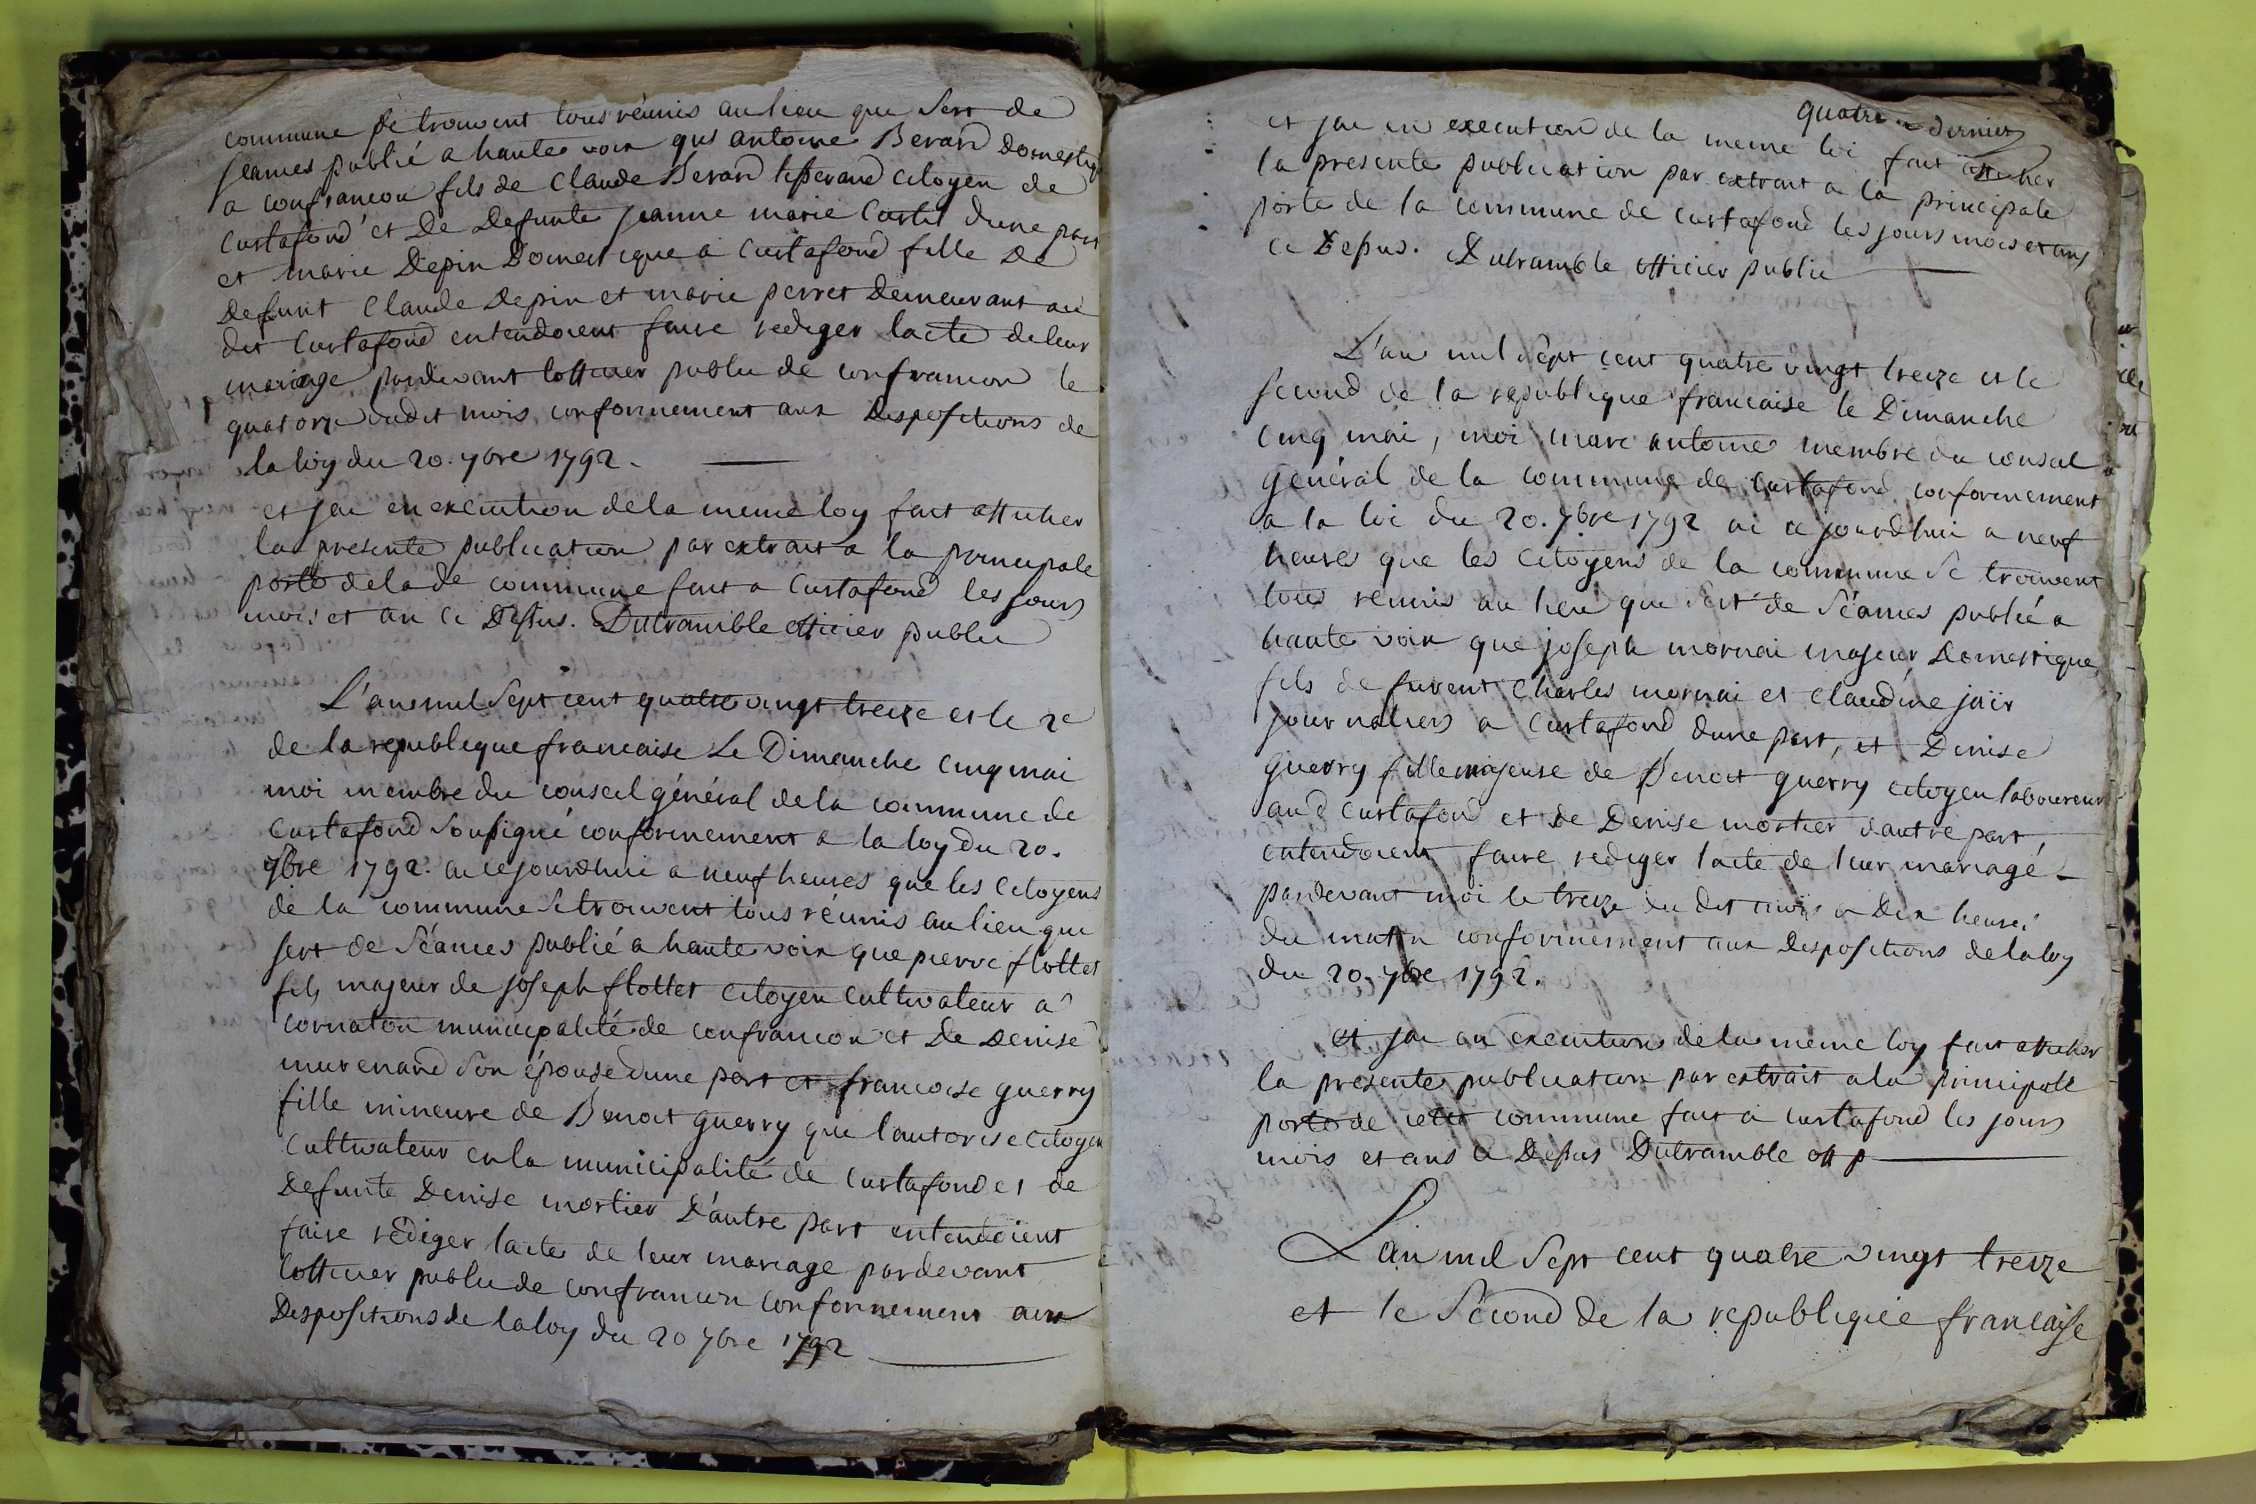 commune se trouvent tous réunis au lieu que sert de
séances publié a haute voix que antoine Berard domestiq
a confrancon fils de Claude Berard tisserand citoyen de
Curtafond et De Defunte jeanne marie Curtil dune part
et marie Depin Domestique a Curtafond fille De
Defunt Claude Depin et marie perret Demeurant au
dit Curtafond entendoient faire rediger lacte de leur
mariage pardevant lofficier public de confrancon le
quatorze dudit mois conformement aux Dispositions de
la loy du 20. 7bre 1792.
et jai en execution de la meme loy fait afficher
la presente publication par extrait a la principale
porte de lade commune fait a Curtafond les jours
mois et an ci Dessus. Dutramble officier public
L'an mil sept cent quatre vingt treize et le 2e
de la republique francaise Le Dimanche cinq mai
moi membre du conseil général de la commune de
Curtafond soussigné conformement a la loy du 20.
7bre 1792. ai cejourdhui a neuf heures que les Citoyens
de la commune se trouvent tous réunis au lieu que
sert de séances publié a haute voix que pierre flottet
fils majeur de joseph flottet Citoyen cultivateur a
cornaton municipalité de confrancon et De Denise
murenard son épouse dune part et francoise guerry
fille mineure de Benoit guerry que l'autorise citoyen
Cultivateur en la municipalité de Curtafond et de
Defunte Denise mortier D'autre part entendoient
faire rédiger lacte de leur mariage pardevant
lofficier public de confrancon conformement aux
Dispositions de la loy du 20 7bre 1792
quatre dernier
et jai en execution de la meme loi fait afficher
la presente publication par extrait a la principale
porte de la commune de curtafond les jours mois et ans
ci Dessus. Dutramble officier public
L'an mil sept cent quatre vingt treize et le
second de la republique francaise le Dimanche
cinq mai, moi marc antoine membre du conseil
général de la commune de curtafond conformement
a la loi du 20. 7bre 1792 ai cejourdhui a neuf
heures que les citoyens de la commune se trouvent
tous réunis au lieu que sert de séances publié a
haute voix que joseph mornai majeur Domestique
fils de furent Charles mornai et Claudine jair
journaliers a Curtafond dune part, et Denise
guerry fille majeure de Benoit guerry citoyen laboureur
aud Curtafond et de Denise mortier dautre part
entendoient faire rediger lacte de leur mariage
pardevant moi le treize du dit mois a Dix heures
du matin conformement aux Dispositions de la loy
du 20. 7bre 1792.
et jai en execution de la même loy fait afficher
la presente publication par extrait a la principale
porte de cette commune fait a curtafond les jours
mois et ans ci Dessus Dutramble off p
Lan mil sept cent quatre vingt treize
et le second de la republique francaise